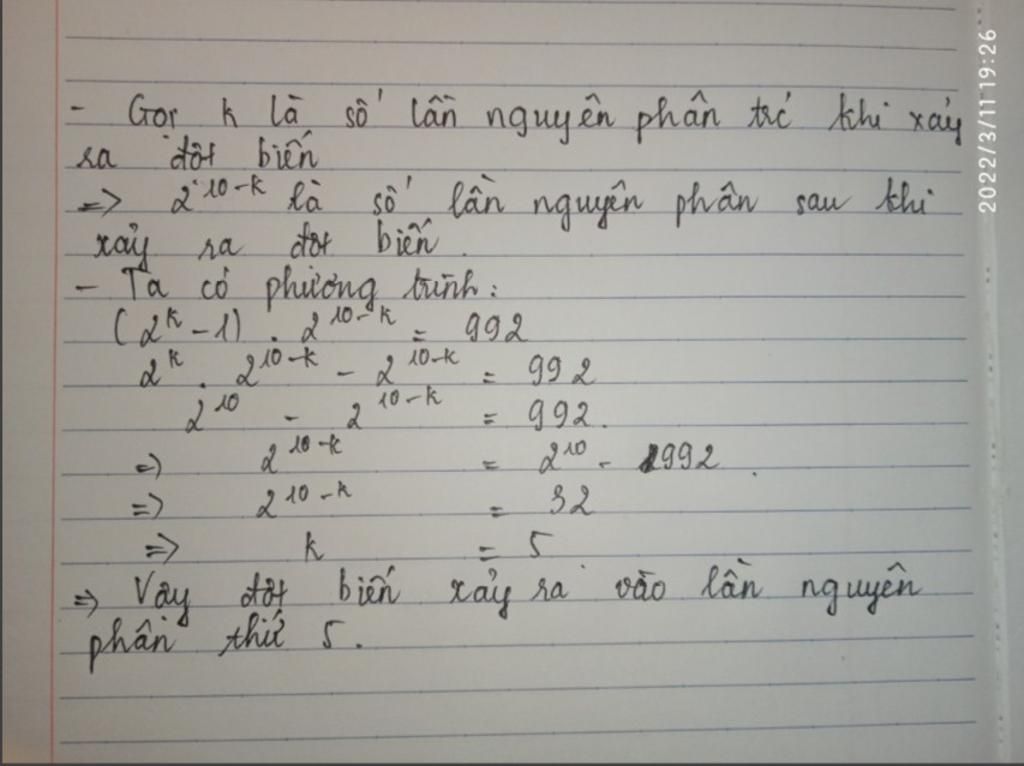 - Gọi k là số lần nguyên phân trc khi xảy
ra đột biến
=> 2^10-k là số lần nguyên phân sau khi
xảy ra đột biến.
- Ta có phương trình:
(2^k - 1) . 2^10-k = 992
2^k . 2^10-k - 2^10-k = 992
2^10 - 2^10-k = 992.
=> 2^10-k = 2^10 - 992.
=> 2^10-k = 32
=> k = 5
=> Vậy đột biến xảy ra vào lần nguyên
phân thứ 5.
2022/3/11 19:26